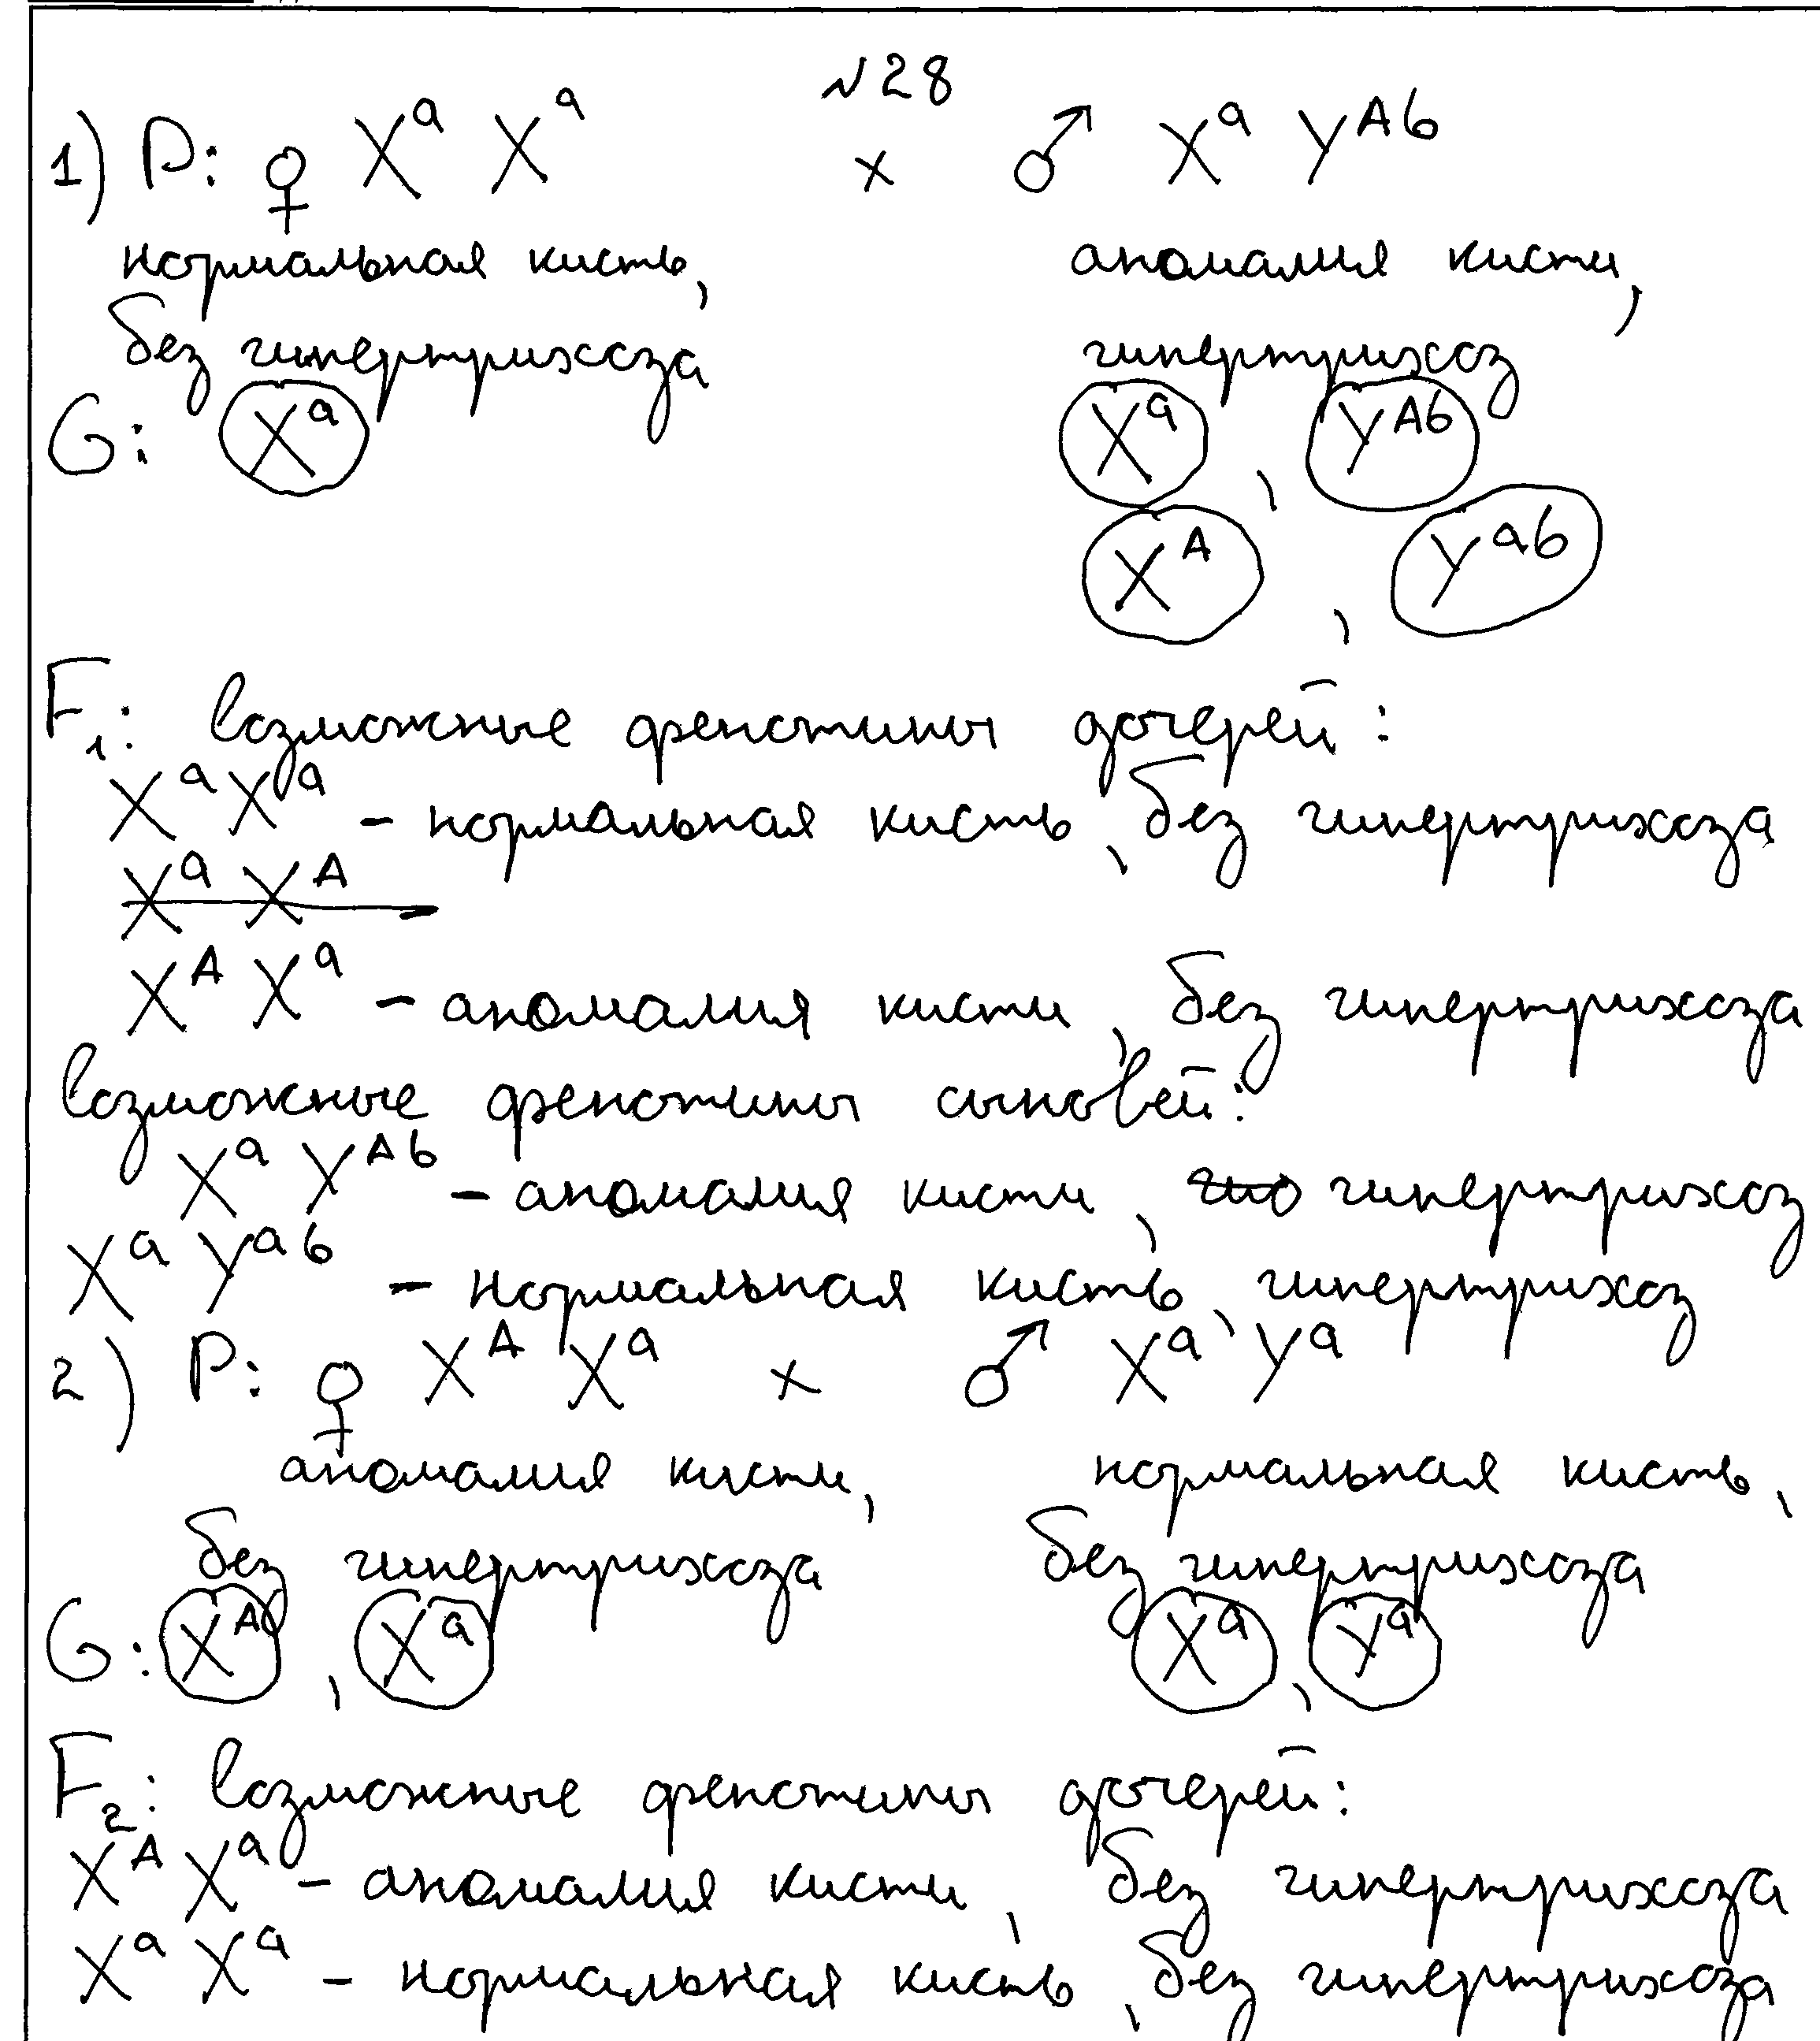 №28
1) P: ♀ XᵃXᵃ × ♂ XᵃYᴬᵇ
нормальная кисть, аномалия кисти,
без гипертрихоза гипертрихоз
G: Xᵃ Xᵃ, Yᴬᵇ
Xᴬ, Yᵃᵇ
F₁: возможные фенотипы дочерей:
XᵃXᵃ – нормальная кисть, без гипертрихоза
XᵃXᴬ –
XᴬXᵃ – аномалия кисти, без гипертрихоза
возможные фенотипы сыновей:
XᵃYᴬᵇ – аномалия кисти, гипертрихоз
XᵃYᵃᵇ – нормальная кисть, гипертрихоз
2) P: ♀ XᴬXᵃ × ♂ XᵃYᵃ
аномалия кисти, нормальная кисть,
без гипертрихоза без гипертрихоза
G: Xᴬ, Xᵃ Xᵃ, Yᵃ
F₂: возможные фенотипы дочерей:
XᴬXᵃ – аномалия кисти, без гипертрихоза
XᵃXᵃ – нормальная кисть, без гипертрихоза